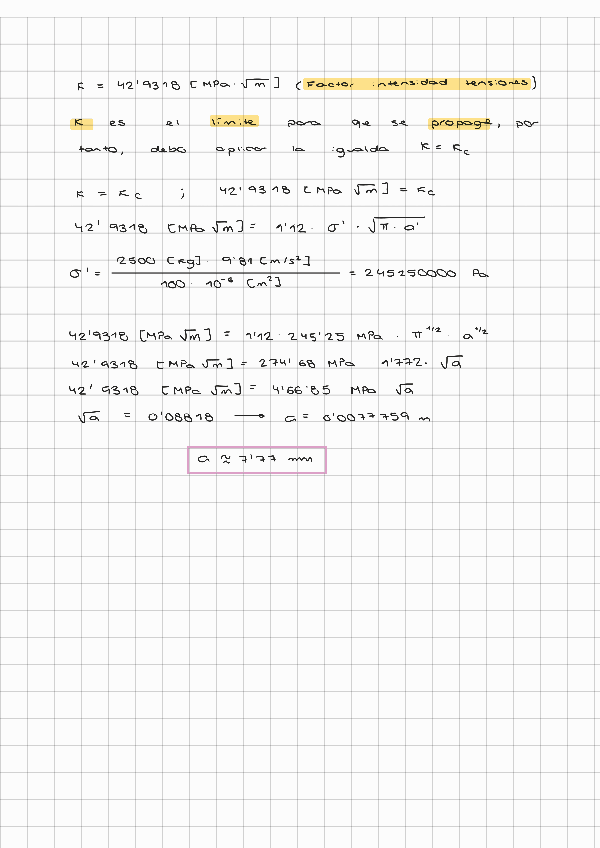 K = 42'9318 [MPa·√m] (Factor intensidad tensiones)
K es el límite para que se propage, por
tanto, debo aplicar la igualda K = Kc
K = Kc ; 42'9318 [MPa √m] = Kc
42'9318 [MPa √m] = 1'12 · σ' · √π · a'
σ' = 2500 [kg] · 9'81 [m/s²] / 100 · 10⁻⁶ [m²] = 245250000 Pa
42'9318 [MPa √m] = 1'12 · 245'25 MPa · π^1/2 · a^1/2
42'9318 [MPa √m] = 274'68 MPa 1'772 · √a
42'9318 [MPa √m] = 4'66'85 MPa √a
√a = 0'08818 → a = 0'0077759 m
a ≈ 7'77 mm